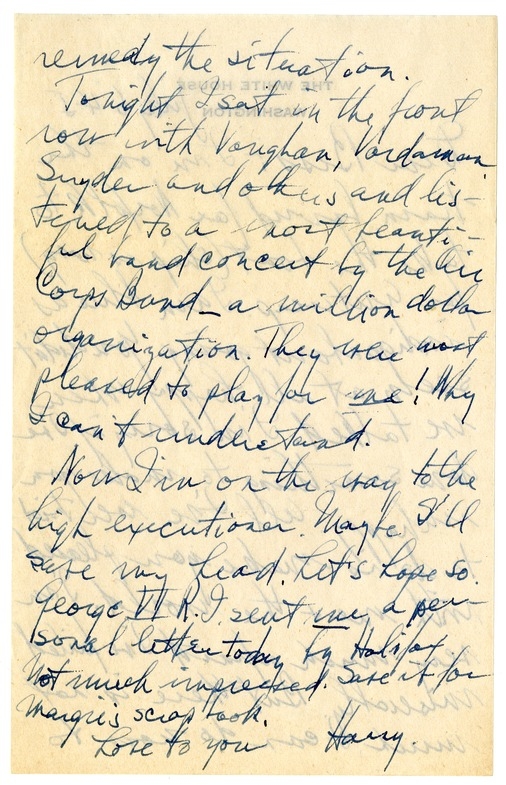 remedy the situation.
Tonight I sat in the front
row with Vaughan, Vardaman
Snyder and others and lis-
tened to a most beauti-
ful band concert by the Air
Corps Band_ a million dollar
organization. They were most
pleased to play for me! Why
I can't understand.
Now I'm on the way to the
high executioner. Maybe I'll
save my head. Let's hope so.
George VI R.I. sent me a per-
sonal letter today by Halifax.
Not much impressed. Save it for
Margie's scrap book.
Love to you Harry.
THE WHITE HOUSE
WASHINGTON